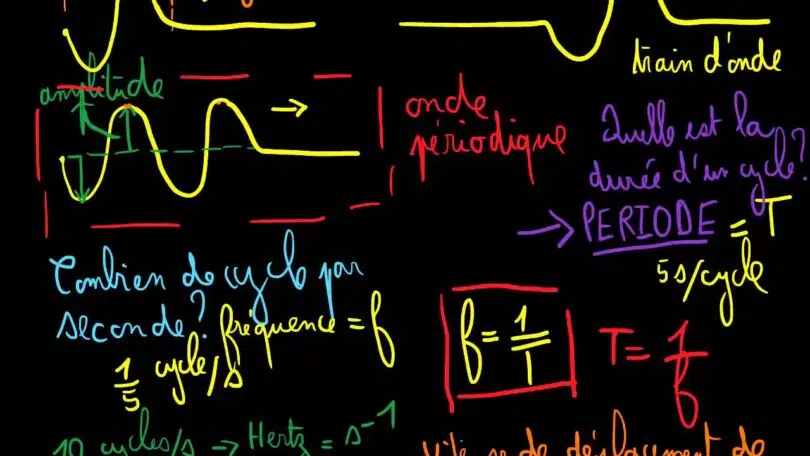 train d'onde
amplitude
onde
périodique
Quelle est la
durée d'un cycle?
→ PERIODE = T
5s/cycle
Combien de cycle par
seconde? fréquence = f
1/5 cycle/s
f = 1/T
T = 1/f
10 cycles/s → Hertz = s⁻¹
Vitesse de déplacement de